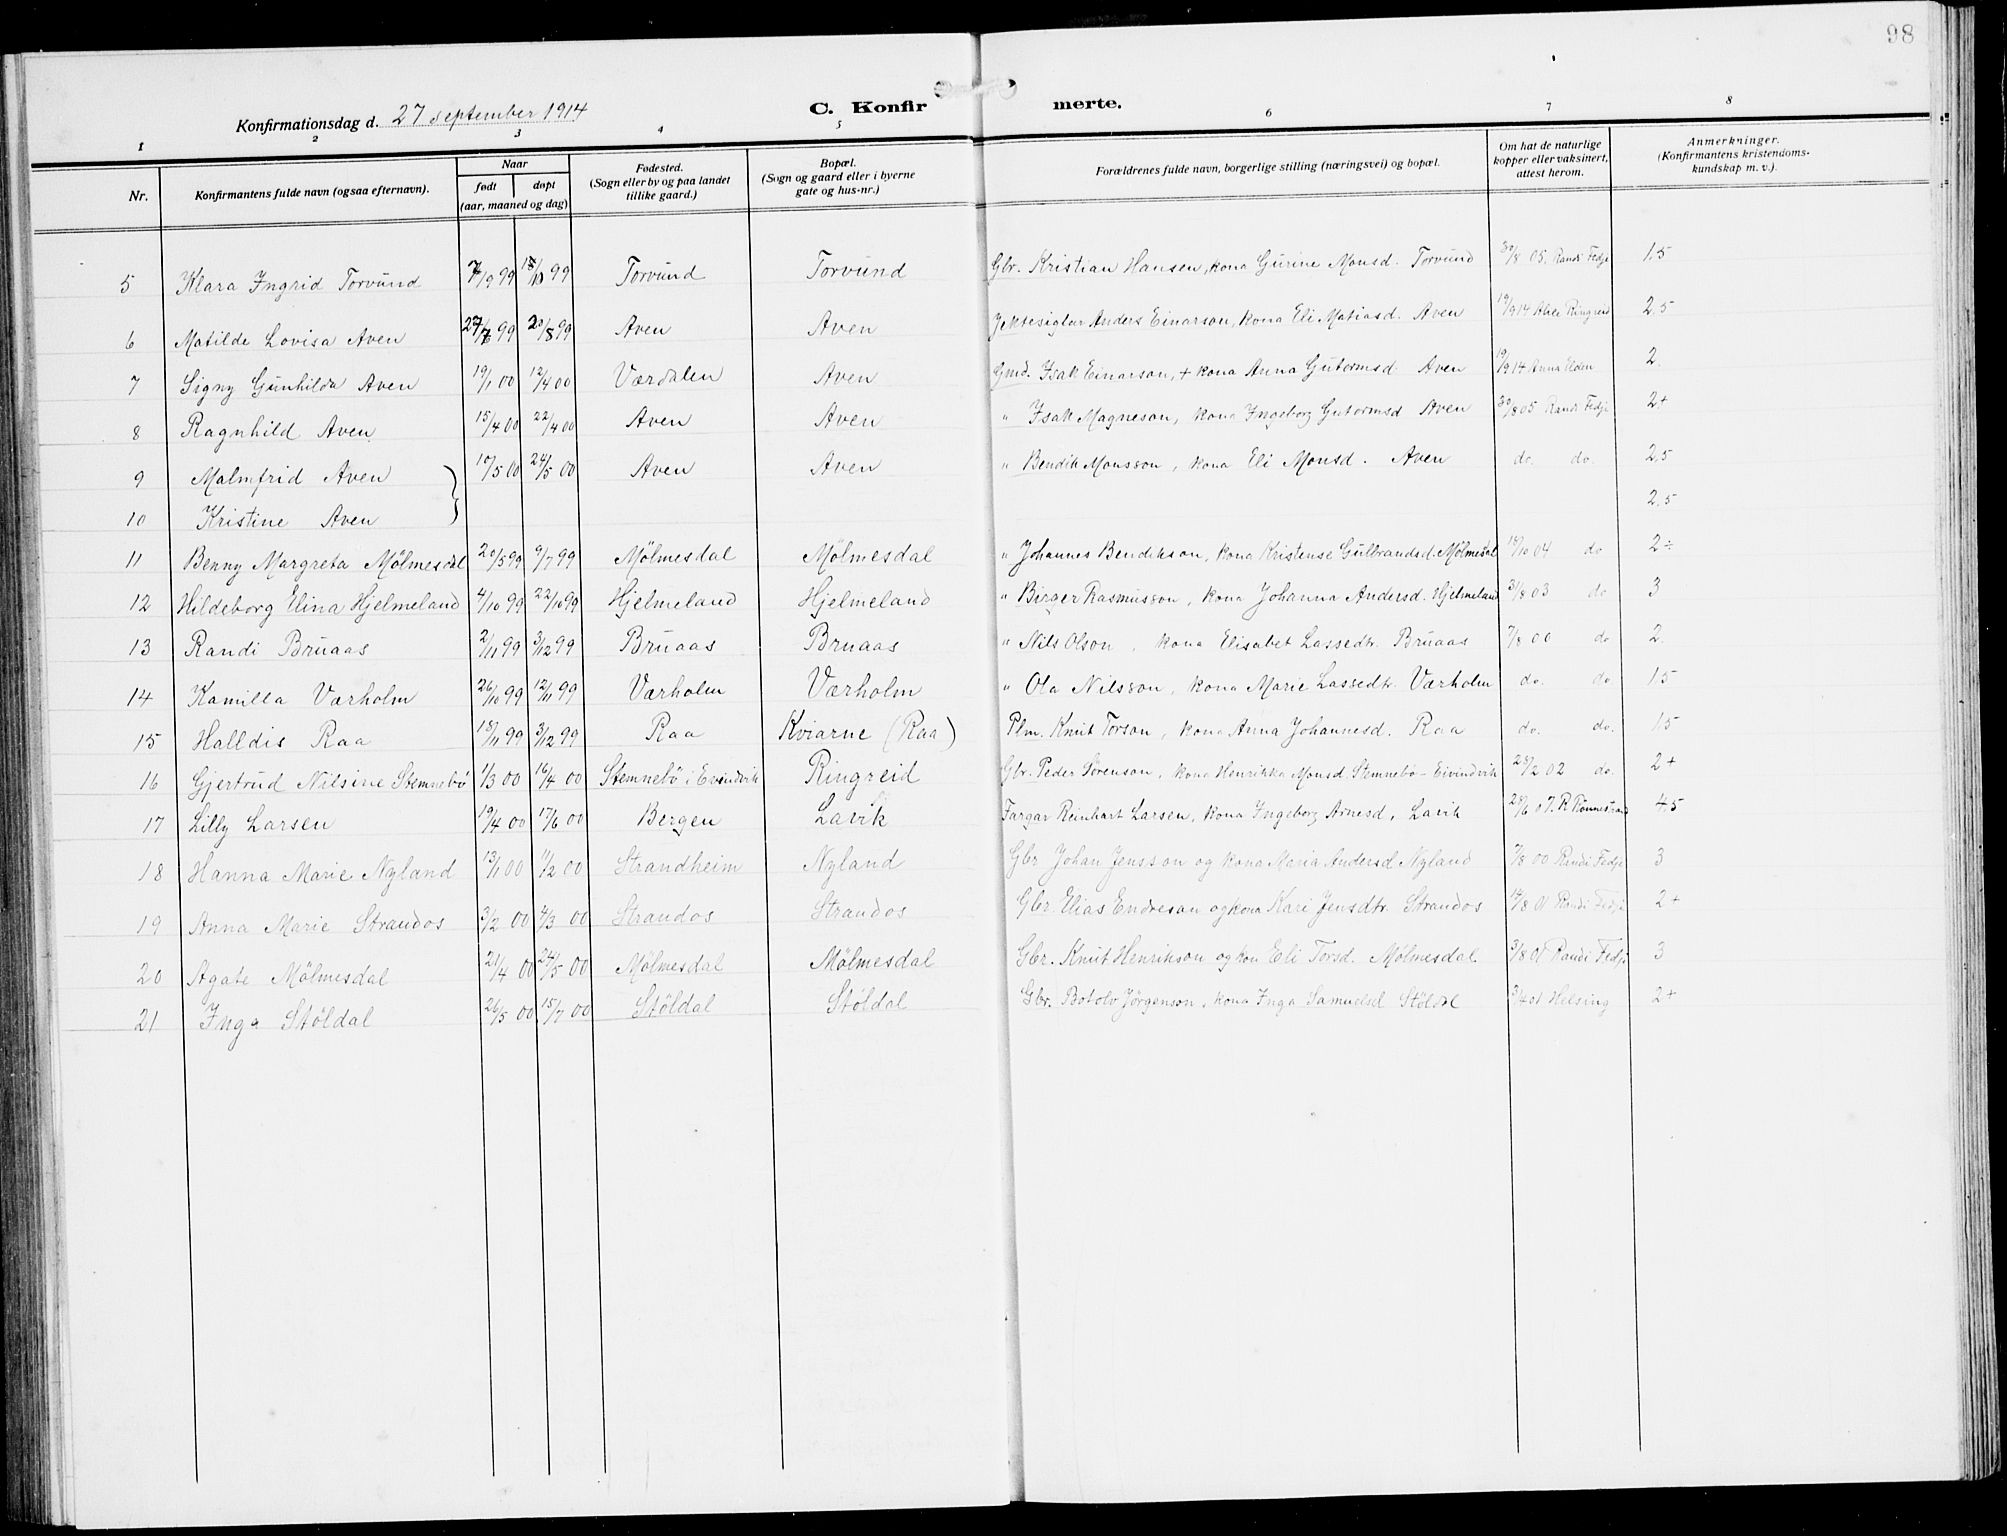 98
Konfirmationsdag d. 27 september 1914
C. Konfirmerte.
1 2 3 4 5 6 7 8
Nr. Konfirmantens fulde navn (ogsaa efternavn). Naar født døpt (aar, maaned og dag) Fødested. (Sogn eller by og paa landet tillike gaard.) Bopæl. (Sogn og gaard eller i byerne gate og hus-nr.) Forældrenes fulde navn, borgerlige stilling (næringsvei) og bopæl. Om hat de naturlige kopper eller vaksinert, attest herom. Anmerkninger. (Konfirmantens kristendoms-kundskap m. v.).
5 Klara Ingrid Torvund 7/9 99 15/10 99 Torvund Torvund Gbr. Kristian Hansen, kona Gurine Monsd. Torvund 30/8 05. Randi Fedje 1.5
6 Matilde Lovisa Aven 27/6 99 20/8 99 Aven Aven Jektesiglar Anders Einarson, kona Eli Matiasd. Aven 19/9 14 Ringreid 2.5
7 Signy Gunhilda Aven 19/1 00 12/4 00 Værdalen Aven Gmd. Isak Einarson, + kona Anna Gutormsd. Aven 19/9 14 Anna Elden 2.
8 Ragnhild Aven 15/4 00 22/4 00 Aven Aven " Isak Magneson, kona Ingeborg Gutormsd Aven 30/8 05 Randi Fedje 2+
9 Malmfrid Aven 10/5 00 24/5 00 Aven Aven " Bendik Monsson, kona Eli Monsd. Aven do. do. 2.5
10 Kristine Aven 2.5
11 Benny Margreta Mölmesdal 20/5 99 9/7 99 Mölmesdal Mölmesdal " Johannes Bendikson, kona Kristense Gulbrandsd. Mölmesdal 18/10 04 do 2÷
12 Hildeborg Elina Hjelmeland 4/10 99 22/10 99 Hjelmeland Hjelmeland " Birger Rasmusson, kona Johanna Andersd. Hjelmeland 31/8 03 do 3
13 Randi Bruaas 2/11 99 3/12 99 Bruaas Bruaas " Nils Olson, kona Elisabet Lassedtr. Bruaas 7/8 00 do 2.
14 Kamilla Værholm 26/10 99 12/11 99 Værholm Værholm " Ola Nilsson, kona Marie Lassedtr. Værholm do. do 15
15 Halldis Raa 18/11 99 3/12 99 Raa Kviarne (Raa) Plm. Knut Torson, kona Anna Johannesd. Raa do. do. 15
16 Gjertrud Nilsine Stemnebö 1/3 00 16/4 00 Stemnebö i Evindvik Ringreid Gbr. Peder Sörenson, kona Henrikka Monsd. Stemnebö - Eivindvik 28/2 02 do. 2+
17 Lilly Larsen 19/4 00 17/6 00 Bergen Lavik Fargar Reinhart Larsen, kona Ingeborg Arnesd, Lavik 28/6 07. R. Rönnestrand 45
18 Hanna Marie Nyland 13/1 00 11/2 00 Strandheim Nyland Gbr Johan Jensson og kona Maria Andersd Nyland 7/8 00 Randi Fedje 3
19 Anna Marie Strandos 3/2 00 4/3 00 Strandos Strandos Gbr. Elias Endreson og kona Kari Jensdtr. Strandos 14/8 01 Randi Fedje 2+
20 Agate Mölmesdal 21/4 00 24/5 00 Mölmesdal Mölmesdal Gbr. Knut Henrikson og kon Eli Torsd. Mölmesdal 3/8 01 Randi Fedje 3
21 Inga Stöldal 26/5 00 15/7 00 Stöldal Stöldal Gbr. Botolv Jörgenson, kona Inga Samuelsd Stöldal 3/4 01 Helsing 2+